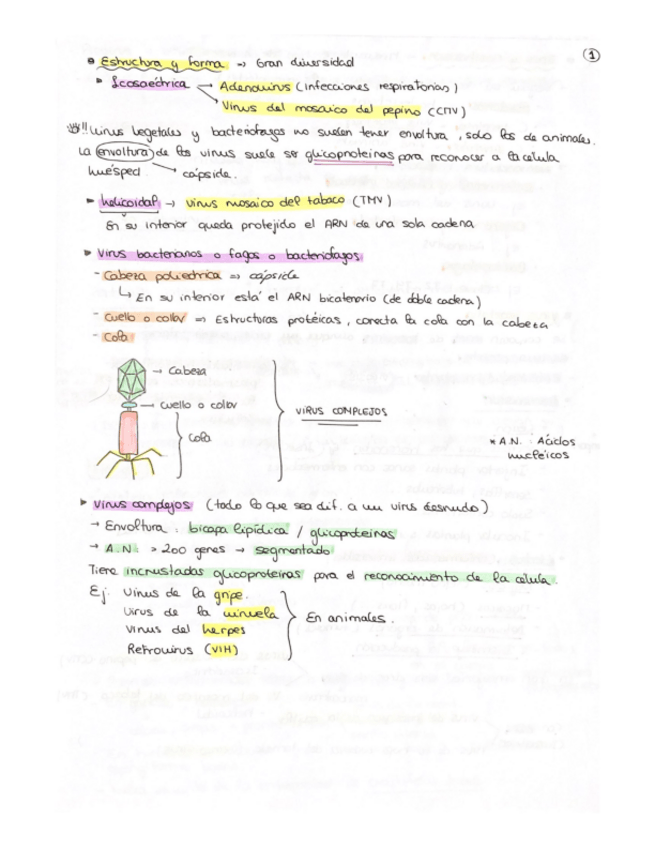 ①
• Estructura y forma → Gran diversidad
▸ Icosaédrica → Adenovirus (infecciones respiratorias)
→ Virus del mosaico del pepino (CMV)
!!! Virus vegetales y bacteriofagos no suelen tener envoltura, solo los de animales.
La envoltura de los virus suele ser glucoproteinas para reconocer a la celula
huésped → cápside.
▸ helicoidal → virus mosaico del tabaco (TMV)
En su interior queda protejido el ARN de una sola cadena
▸ Virus bacterianos o fagos o bacteriofagos
- Cabeza poliedrica ⇒ cápside
↳ En su interior está el ARN bicatenario (de doble cadena)
- Cuello o collar ⇒ Estructuras protéicas, conecta la cola con la cabeza
- Cola
→ Cabeza
→ Cuello o collar
Cola
VIRUS COMPLEJOS
* A.N. : Ácidos
nucleicos
▸ Virus complejos (todo lo que sea dif. a un virus desnudo)
→ Envoltura : bicapa lipídica / glucoproteinas
→ A.N. : > 200 genes → segmentado
Tiene incrustadas glucoproteinas para el reconocimiento de la celula.
Ej. Virus de la gripe.
Virus de la viruela
Virus del herpes
Retrovirus (VIH)
En animales.